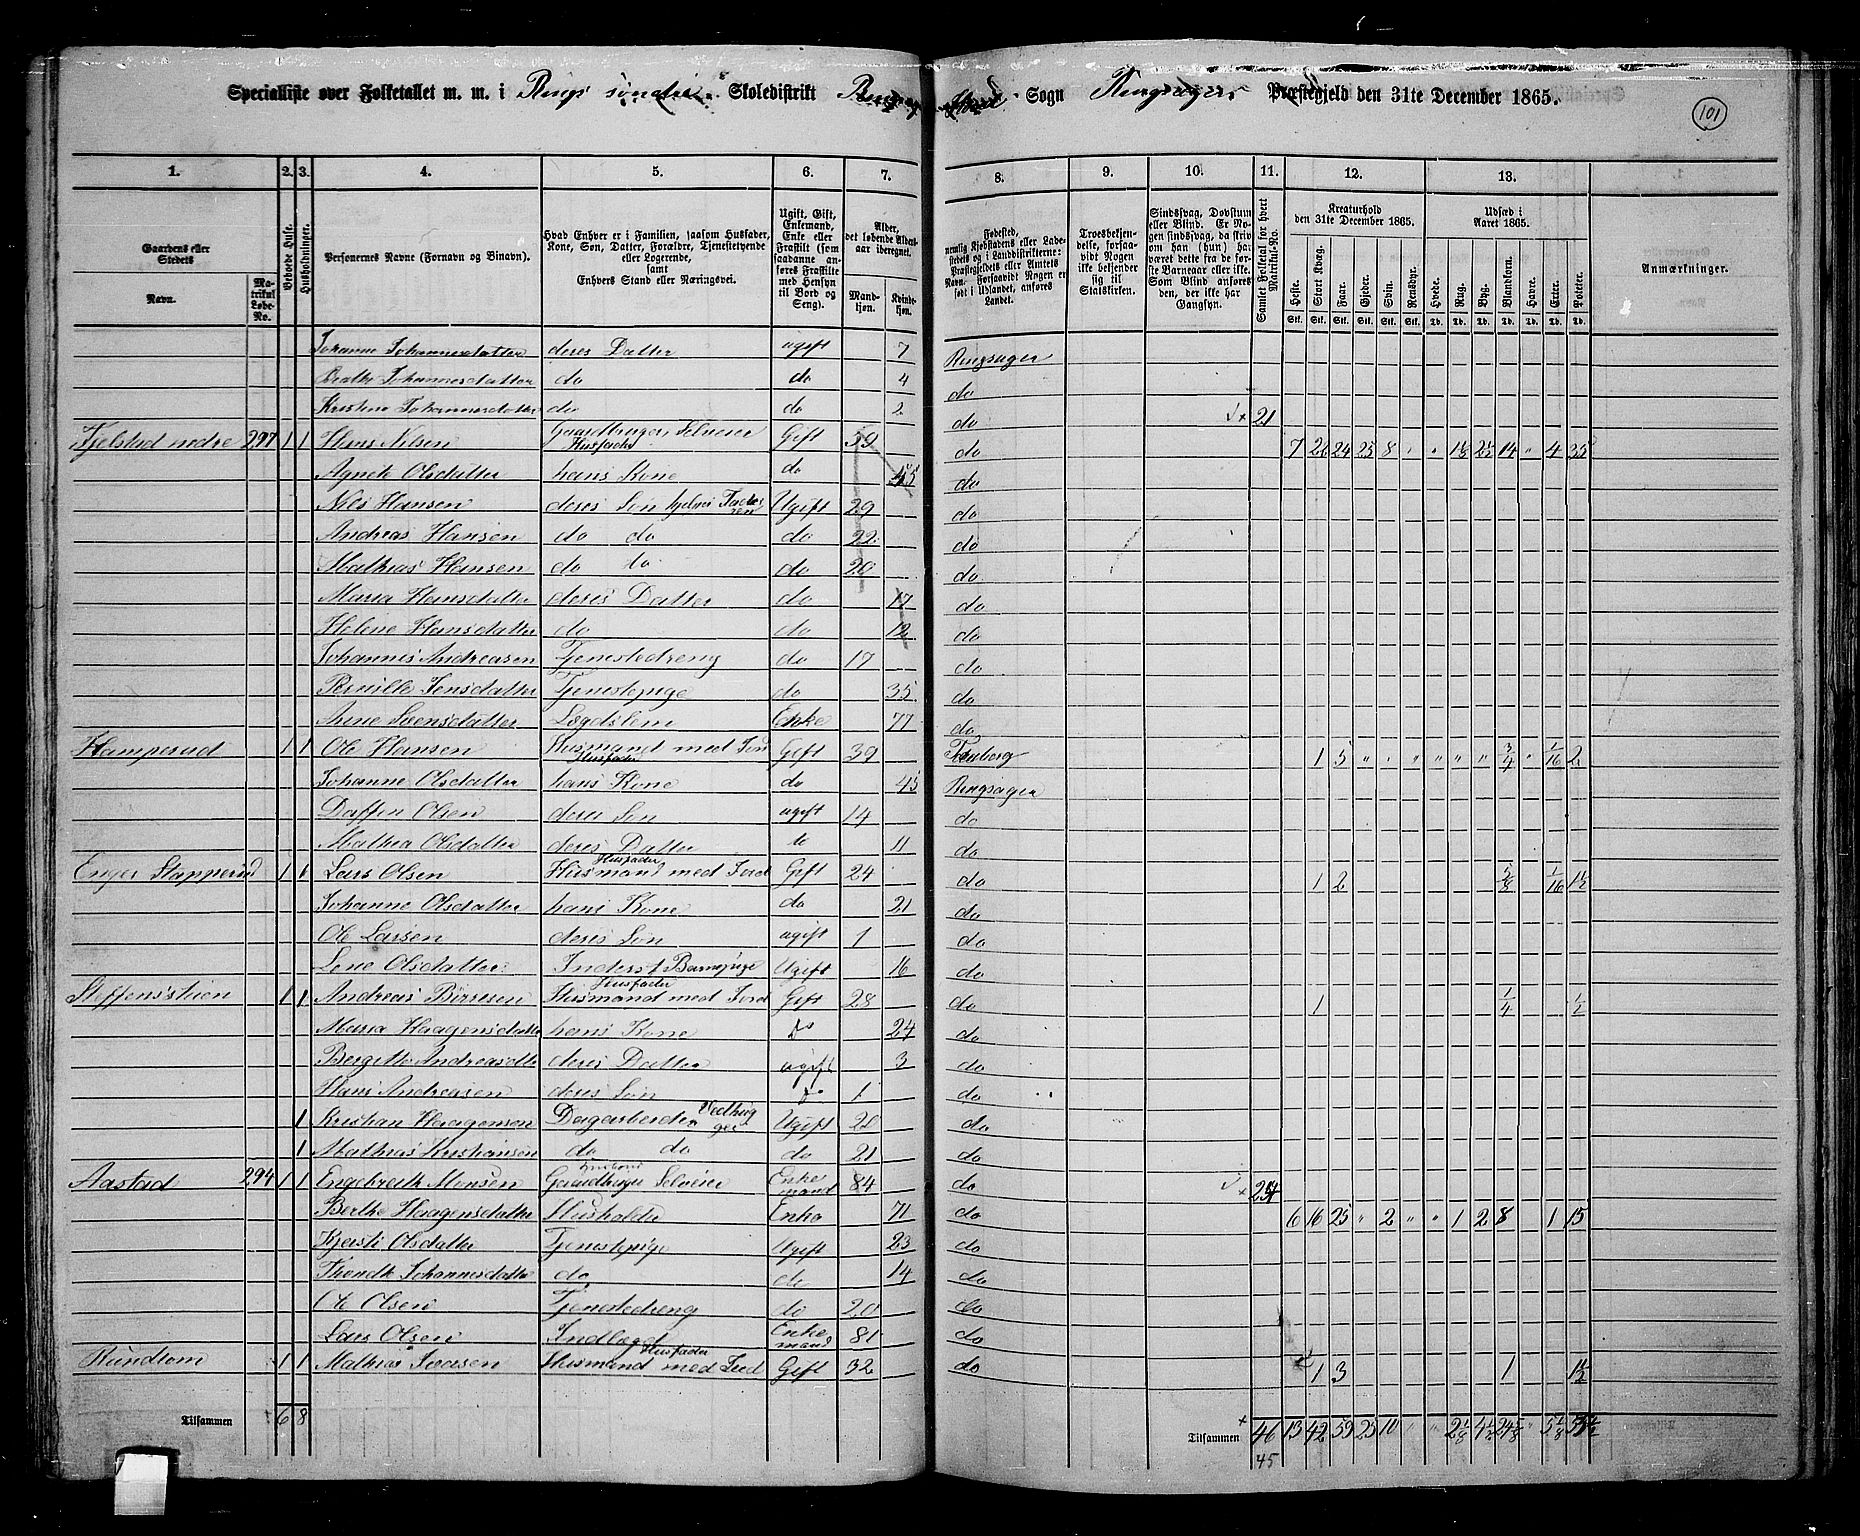 Specialliste over Folketallet m. m. i Rings søndre Skoledistrikt Ringsager Sogn Ringsager Præstegjeld den 31te December 1865.
101
1. 2. 3. 4. 5. 6. 7. 8. 9. 10. 11. 12. 13.
Gaardens eller Stedets
Navn.
Matrikul Løbe-No.
Beboede Huse.
Husholdninger.
Personernes Navne (Fornavn og Binavn).
Hvad Enhver er i Familien, saasom Husfader, Kone, Søn, Datter, Forældre, Tjenestetyende eller Logerende, samt Enhvers Stand eller Næringsvei.
Ugift, Gift, Enkemand, Enke eller Fraskilt (saadanne anføres som Fraskilte med Hensyn til Bord og Seng).
Alder, det løbende Aldersaar iberegnet.
Mandkjøn.
Kvindekjøn.
Fødested, nemlig Kjøbstadens eller Ladestedets og i Landdistrikterne: Præstegjeldets eller Amtets Navn. Forsaavidt Nogen er født i Udlandet, anføres Landet.
Troesbekjendelse, forsaavidt Nogen ikke bekjender sig til Statskirken.
Sindssvag, Døvstum eller Blind.
Samlet Folketal for hvert Matrikul-No.
Kreaturhold den 31te December 1865.
Heste. Stort Kvæg. Faar. Gjeder. Svin. Rensdyr.
Stk. Stk. Stk. Stk. Stk. Stk.
Udsæd i Aaret 1865.
Hvede. Rug. Byg. Blandkorn. Havre. Erter. Poteter.
Td. Td. Td. Td. Td. Td. Td.
Anmærkninger.
Johanne Johannesdatter deres Datter ugift 7 Ringsager
Johannesdatter do do 4 do
Kristine Johannesdatter do do 2 do 21
Fjelstad nedre 297 1 1 Hans Nilsen Gaardbruger Selveier Husfader Gift 59 do 7 26 24 25 8 " " 1 1/8 2 1/2 14 " 4 35
Agnete Olsdatter hans Kone do 55 do
Nils Hansen deres Søn hjelper Faderen Ugift 29 do
Andreas Hansen do do do 22 do
Mathias Hansen do do do 20 do
Maria Hansdatter deres Datter do 17 do
Helene Hansdatter do do 12 do
Johannes Andreasen Tjenestedreng do 17 do
Pernille Jensdatter Tjenestepige do 35 do
Anne Svensdatter Lægdslem Enke 77 do
Hamperud 1 1 Ole Hansen Husmand med Jord Husfader Gift 39 Fauberg 1 5 " " " " " " 3/4 " 1/16 2
Johanne Olsdatter hans Kone do 45 Ringsager
Daffin Olsen deres Søn ugift 14 do
Mathea Olsdatter deres Datter do 11 do
Enger Stapperud 1 1 Lars Olsen Husfader Husmand med Jord Gift 24 do 1 2 5/8 1/16 1 1/2
Johanne Olsdatter hans Kone do 21 do
Ole Larsen deres Søn ugift 1 do
Lene Olsdatter Inderst Barnepige Ugift 16 do
Steffensstuen 1 1 Andreas Børresen Husfader Husmand med Jord Gift 28 do 1 1/4 1/2
Maria Haagensdatter hans Kone do 24 do
Bergitte Andreasdtr deres Datter ugift 3 do
Hans Andreasen deres Søn do 1 do
1 Kristian Haagensen Dagarbeider Vedhugger Ugift 28 do
1 Mathias Kristiansen do do do 21 do
Aastad 294 1 1 Engebreth Monsen Gaardbruger Selveier Enkemand 84 do 24
Berthe Haagensdatter Husholder Enke 71 do 6 16 25 " 2 " " 1 2 8 1 15
Kjersti Olsdatter Tjenestepige Ugift 23 do
Johannesdatter do do 14 do
Ole Olsen Tjenestedreng do 20 do
Lars Olsen Indlagd Enkemand 81 do
Rundtom 1 1 Mathias Ivarsen Husfader Husmand med Jord Gift 32 do 1 3 1 1 1/2
Tilsammen 6 8
Tilsammen 46 13 42 59 25 10 " " 2 1/8 4 1/2 24 5/8 " 5 1/8 55 1/2
45